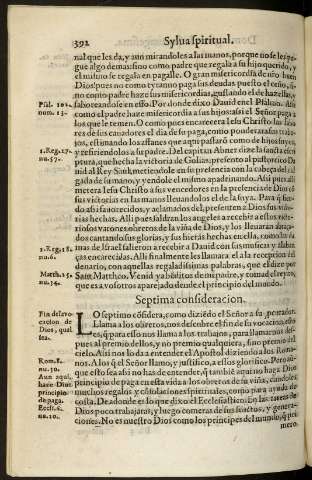 392 Sylua spiritual.
nal que les da, y aun mirandoles a las manos, porque no se les pe-
gue algo demasiado como padre que regala a su hijo querido, y
el mismo se regala en pagalle. O gran misericordia de nro buen
Dios pues no como tyrano paga sus deudas puesto el ceño, si
no como padre haze sus misericordias, gustando el de hazellas, y
Psal. 102. saboreandose en esso. Por donde dixo Dauid en el Psalmo. Assi
num. 13. como el padre haze misericordia a sus hijos: assi el Señor paga a
los que le temen. O como pues encarecera Iesu Christo
res de sus cauadores el dia de su paga, como ponderara sus traba-
jos, estimando los affanes que aqui passaron como de hijos suyos,
y refiriendolos a su padre. Del capitan Abner dize la sancta escri-
1. Reg. 17. ptura, que hecha la victoria de Golias, presento al pastorcico Da
nu. 57. uid al Rey Saul, metiendole en su presencia con la cabeça del
gada de su mano, y yendole el mismo apadrinando. Assi pues alli
metera Iesu Christo a sus vencedores en la presencia de Dios
sus victorias en las manos llenandolos el de la suya. Para
do assi fauorecidos, y aclamados del, presenten a Dios sus victo-
rias hechas. Alli pues saldran los angeles a recebir a estos victo-
riosos varones obreros de la viña de Dios, y los lleuaran
dos cantando sus glorias, y sus heroicas hechas en ella, como las da-
1. Reg. 18. mas de Israel salieron a recebir a Dauid con sus musicas y alaban
nu. 6. ças encarecidas. Alli finalmente les llamara el a la recepcion del
denario, con aquellas regaladissimas palabras, que el dize por
Matth. 25. Sant Mattheo. Venid ya hijitos de mi padre, y tomad el reyno,
nu. 34. que es a vosotros aparejado desde el principio del mundo.
Septima consideracion.
Fin de la vo-
cacion de
Dios, qual
sea.
LO septimo cosidera, como diziedo el Señor a su
Llama a los obreros, nos descubre el fin de su vocacion,
es, q para esto nos llama a los trabajos, para llamarnos des-
pues al premio dellos, y no premio qualquiera, sino premio del
cielo. Assi nos lo da a entender el Apostol diziedo a los Roma-
Rom. 8. nos. A los q el Señor llamo, y justifico, a essos glorifico. Pero
nu. 30. que esto sea assi no has de entender, q tambien aqui no haga Dios
Aun aqui
haze Dios
principio
de paga. principio de paga en esta vida a los obreros de su viña, dandoles
muchos regalos y consolaciones spirituales, como para ayuda de
costa. De adonde es lo que dixo el Ecclesiastico. En las tareas de
Eccls. 6. Dios poco trabajaras, y luego comeras de sus fructos, y genera-
nu. 20. ciones. No es nuestro Dios como los principes del mundo, q pri
mero